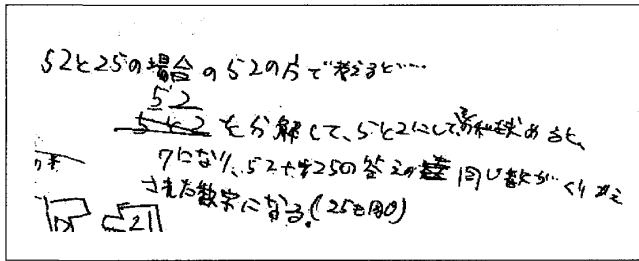 52と25の場合の52の方で考えると……
52
を分解して、5と2にして、和を求めると、
7になり、52+25の答えが同じ数がくりかえ
された数字になる。(25も同じ)
2